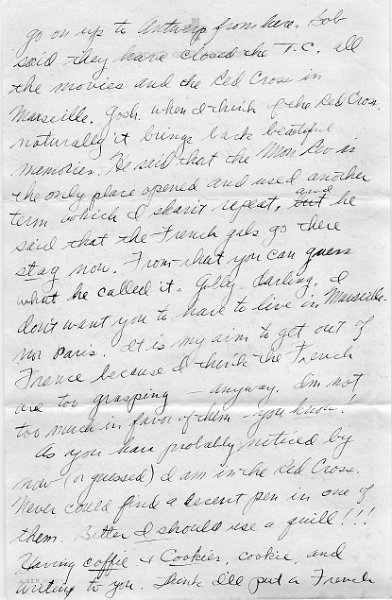 go on up to Antwerp from here. Bob
said they have closed the T.C. all
the movies and the Red Cross in
Marseille. Gosh, when I think of the Red Cross
naturally it brings back beautiful
memories. He said that the Mon Rev is
the only place opened and used another
term which I shan't repeat, and he
said that the French gals go there
stag now. From that you can guess
what he called it. Golly, darling, I
don't want you to have to live in Marseille
nor Paris. It is my aim to get out of
France because I think the French
are too grasping — anyway. I'm not
too much in favor of them - you know!
As you have probably noticed by
now (or guessed) I am in the Red Cross.
Never could find a decent pen in one of
them. Better I should use a quill!!!
Having coffie + Cookies, cookie, and
writing to you. Think I'll put a French